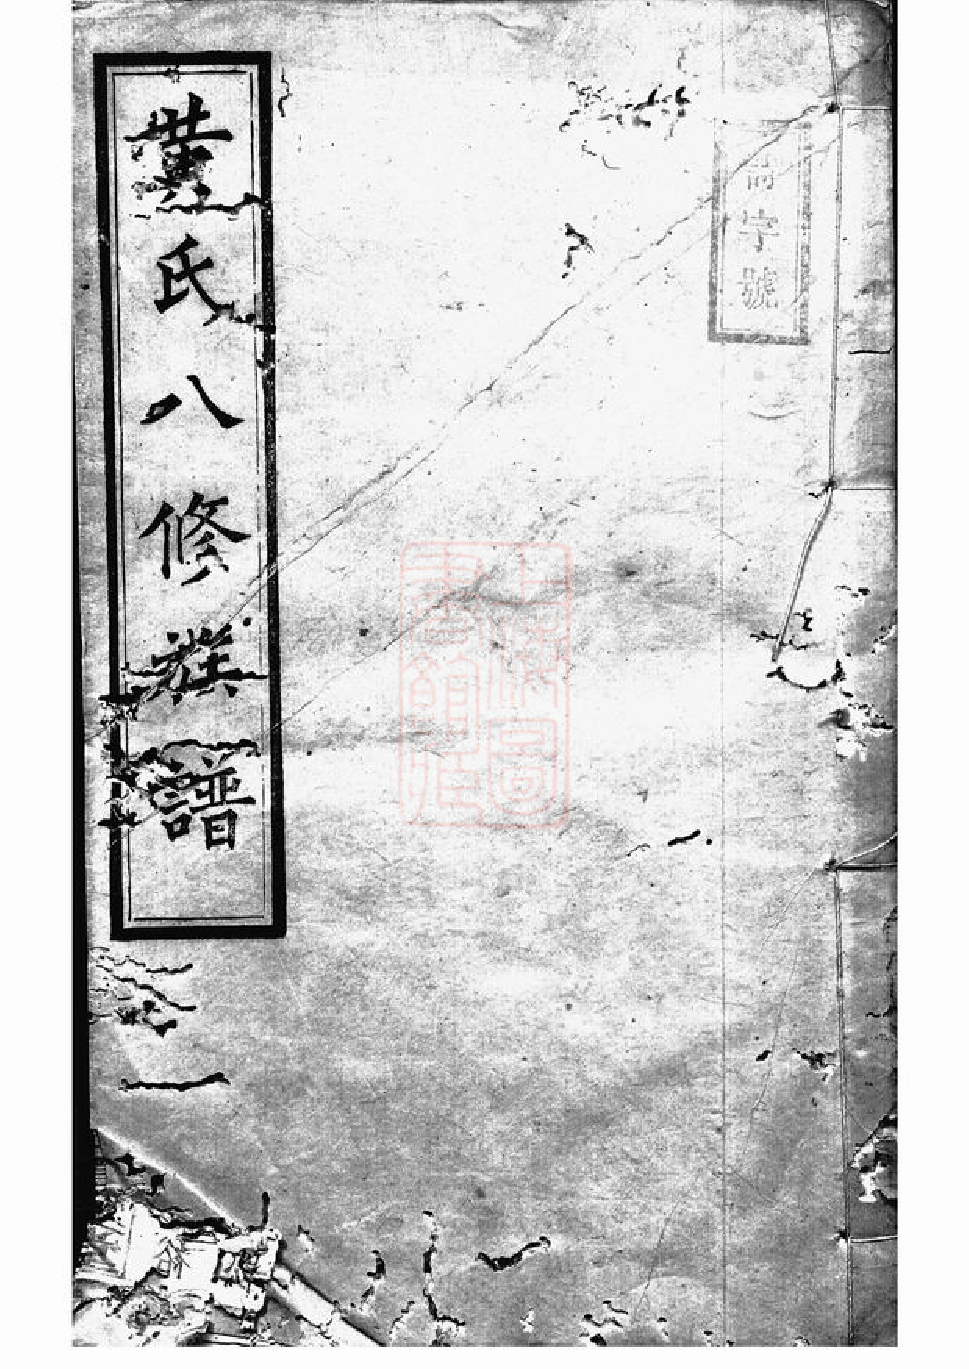 詩字號
黃氏八修族譜
上海圖
書館藏